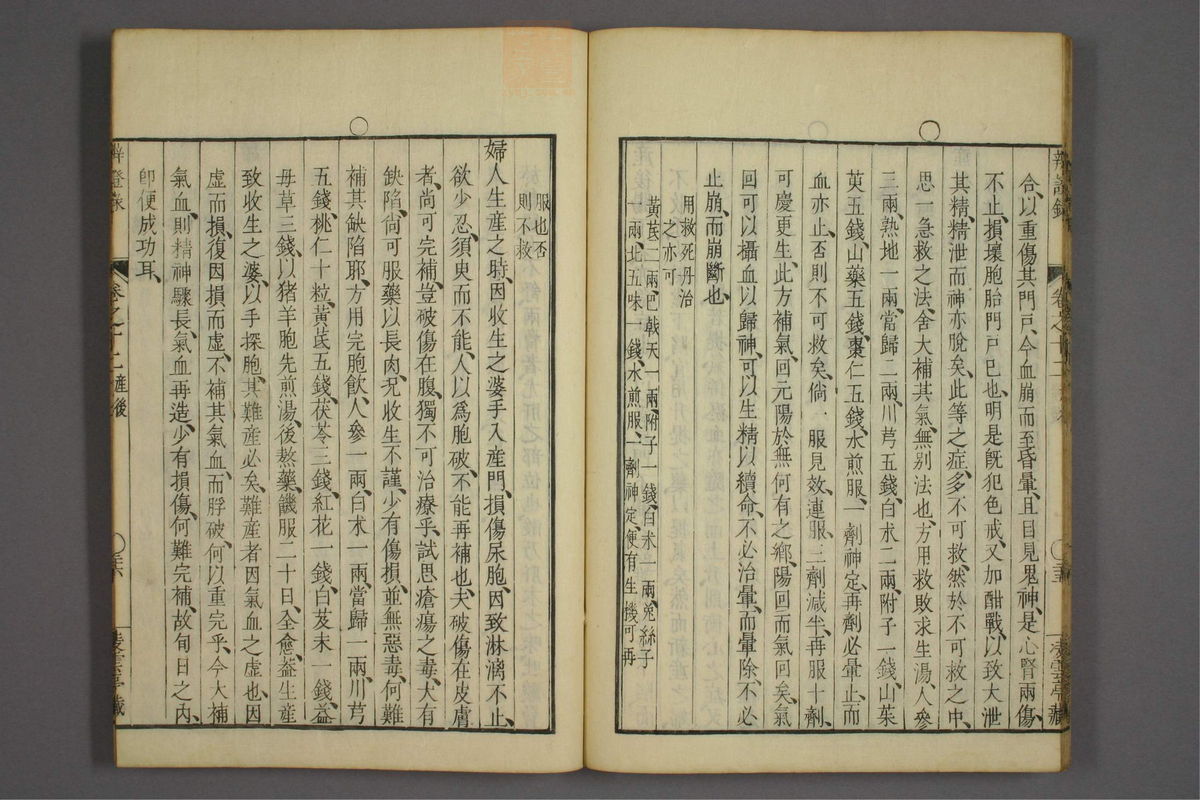 辨證錄
卷之十二
凌雲亭藏
合、以重傷其門戶、今血崩而至昏暈、且目見鬼神、是心腎兩傷、
不止損壞胞胎門戶巳也、明是旣犯色戒、又加酣戰、以致大泄
其精、精泄而神亦脫矣、此等之症、多不可救、然於不可救之中、
思一急救之法、舍大補其氣、無別法也、方用救敗求生湯、人參
三兩、熟地一兩、當歸二兩、川芎五錢、白朮二兩、附子一錢、山茱
萸五錢、山藥五錢、棗仁五錢、水煎服、一劑神定、再劑必暈止、而
血亦止、否則不可救矣、倘一服見效、連服三劑、減半再服十劑、
可慶更生、此方補氣、回元陽於無何有之鄉、陽回而氣回矣、氣
回可以攝血以歸神、可以生精以續命、不必治暈、而暈除、不必
止崩、而崩斷也、
用救死丹治
之亦可
黃芪二兩巴戟天一兩、附子一錢、白朮一兩菟絲子
一兩、北五味一錢、水煎服、一劑神定、便有生機可再
服也否
則不救
婦人生產之時、因收生之婆手入產門、損傷尿胞、因致淋漓不止、
欲少忍、須臾而不能、人以爲胞破、不能再補也、夫破傷在皮膚
者、尚可完補、豈破傷在腹、獨不可治療乎、試思瘡瘍之毒、大有
缺陷、尚可服藥以長肉、況收生不謹、少有傷損、並無惡毒、何難
補其缺陷耶、方用完胞飲、人參一兩、白朮一兩、當歸一兩、川芎
五錢、桃仁十粒、黃芪五錢、茯苓三錢、紅花一錢、白芨末一錢、益
毋草三錢、以猪羊胞先煎湯、後熬藥、饑服二十日、全愈、葢生產
致收生之婆、以手探胞、其難產必矣、難產者因氣血之虛也、因
虛而損、復因損而虛、不補其氣血、而脬破、何以重完乎、今大補
氣血、則精神驟長、氣血再造、少有損傷、何難完補、故旬日之內、
卽便成功耳、
辨證錄
卷之十二 產後
凌雲亭藏